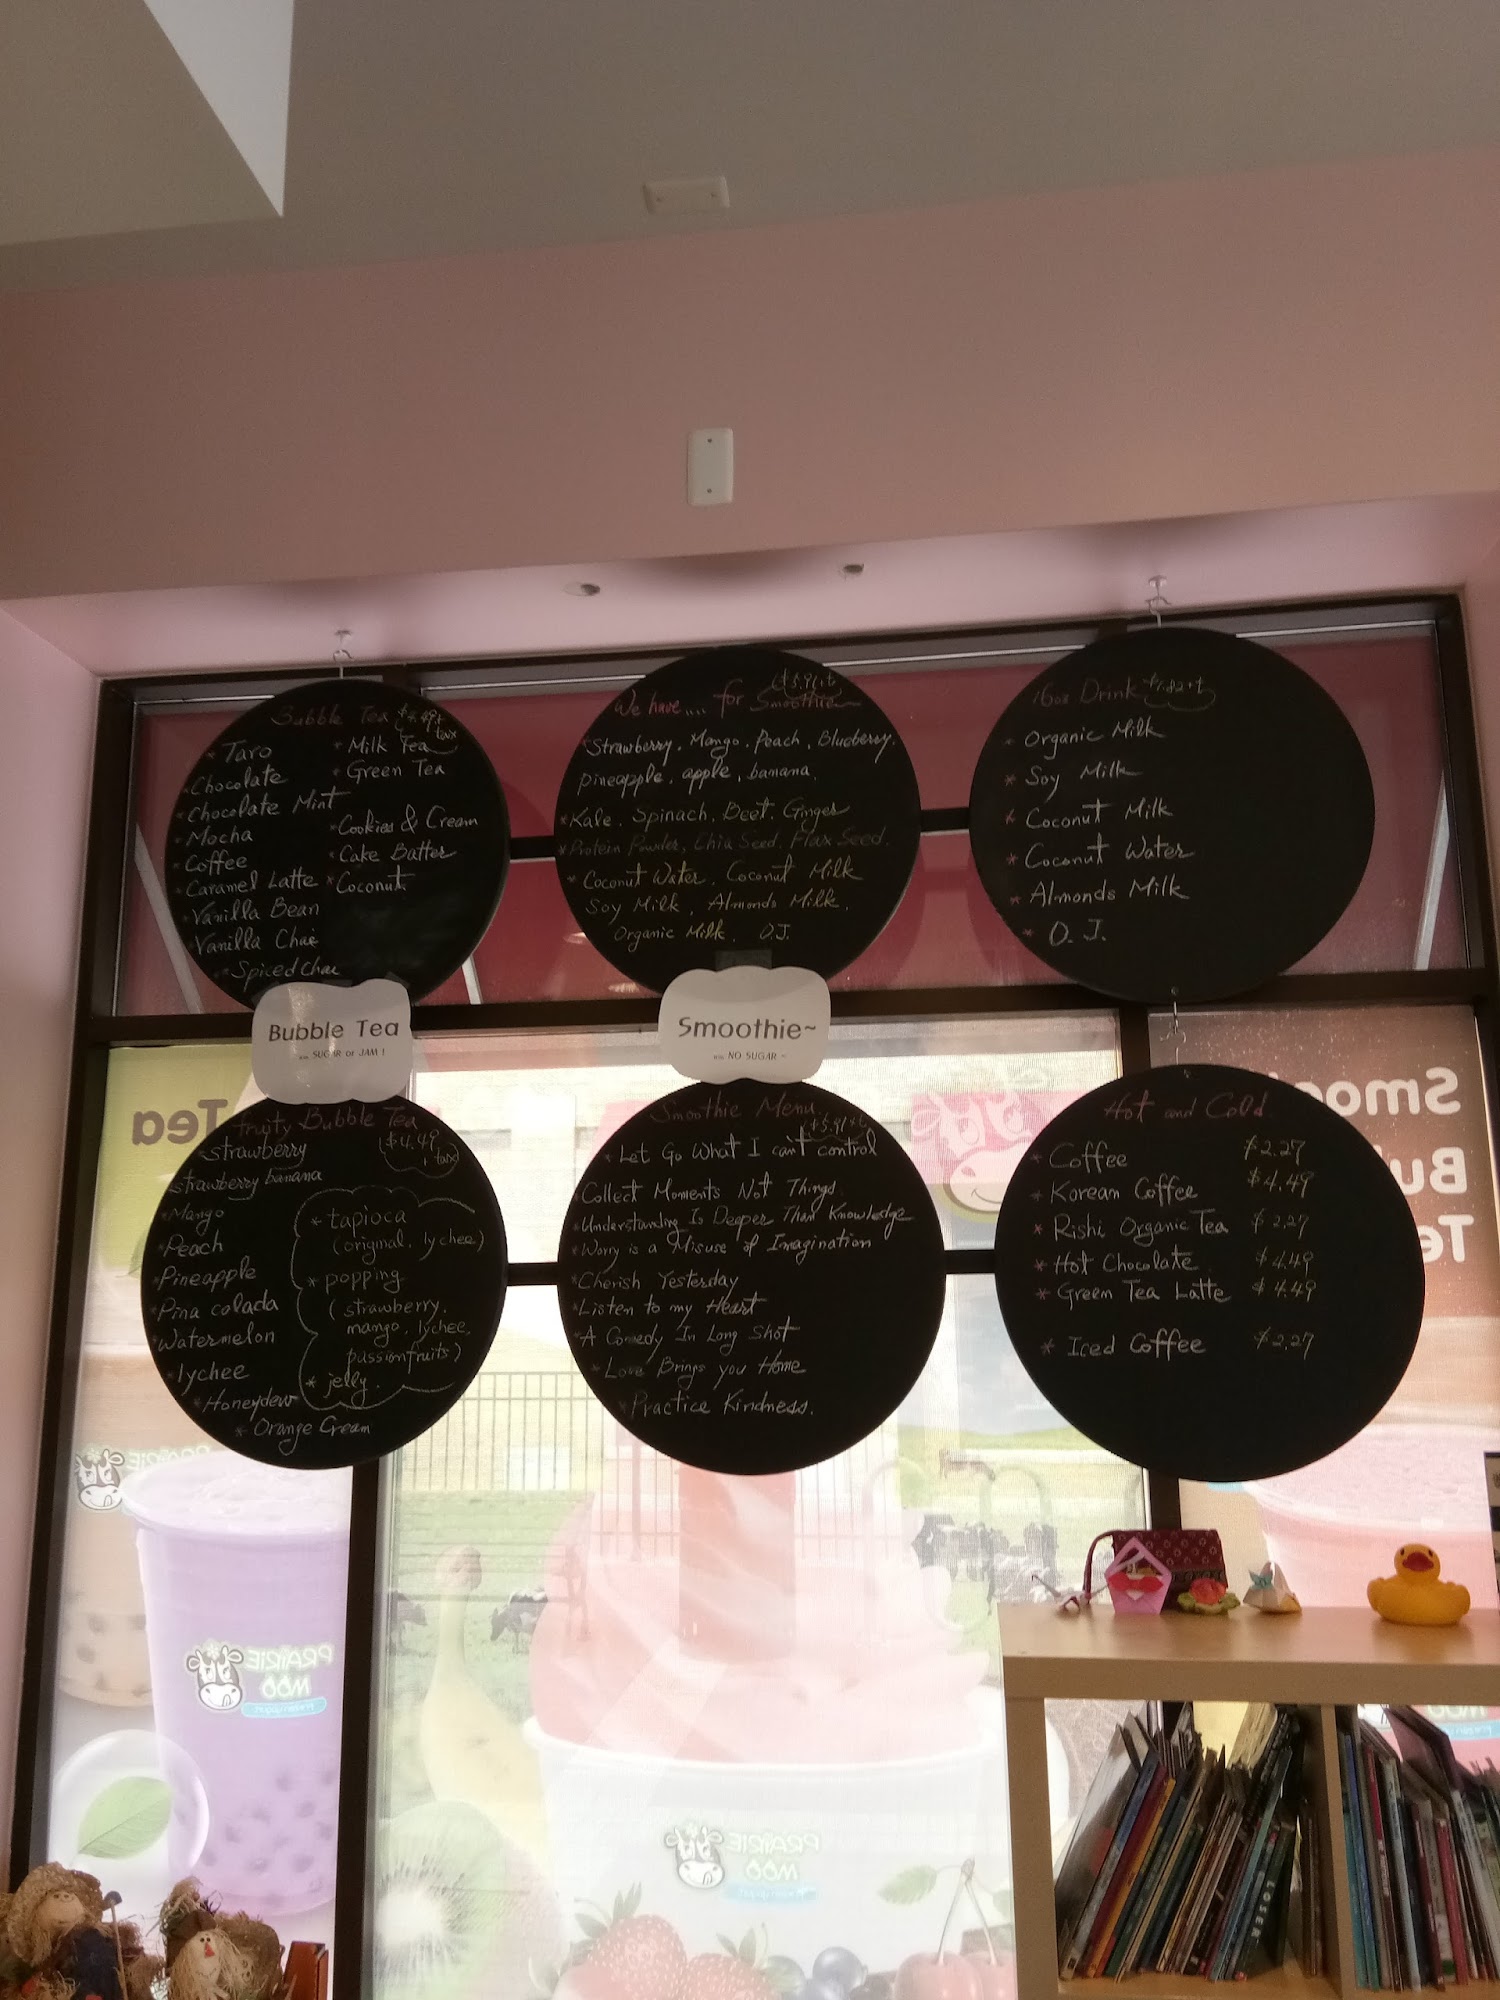 Bubble Tea $4.49+
tax
* Taro
* Chocolate
* Chocolate Mint
* Mocha
* Coffee
* Caramel Latte
* Vanilla Bean
* Vanilla Chai
* Spiced Chai
* Milk Tea
* Green Tea
* Cookies & Cream
* Cake Batter
* Coconut
We have.... for Smoothie
$5.91+t
Strawberry, Mango, Peach, Blueberry,
pineapple, apple, banana.
* Kale, Spinach, Beet, Ginger
* Protein Powder, Chia Seed, Flax Seed.
* Coconut Water, Coconut Milk
Soy Milk, Almonds Milk,
Organic Milk, O.J.
16oz Drink $1.82+t
* Organic Milk
* Soy Milk
* Coconut Milk
* Coconut Water
* Almonds Milk
* O. J.
Bubble Tea
SUGAR or JAM !
Smoothie~
NO SUGAR ~
Fruity Bubble Tea
($4.49
+ tax)
* strawberry
* strawberry banana
* Mango
* Peach
* Pineapple
* Pina colada
* Watermelon
* lychee
* Honeydew
* Orange Cream
* tapioca
(original, lychee)
* popping
(strawberry,
mango, lychee,
passionfruits)
* jelly.
Smoothie Menu
($5.91+t)
* Let Go What I can't control
* Collect Moments Not Things
* Understanding Is Deeper Than Knowledge
* Worry is a Misuse of Imagination
* Cherish Yesterday
* Listen to my Heart
* A Comedy In Long Shot
* Love Brings you Home
* Practice Kindness.
Hot and Cold
* Coffee $2.27
* Korean Coffee $4.49
* Rishi Organic Tea $2.27
* Hot Chocolate $4.49
* Green Tea Latte $4.49
* Iced Coffee $2.27
Tea
Smoo
Bu
Te
PRAIRIE
MOO
PRAIRIE
MOO
LOSER